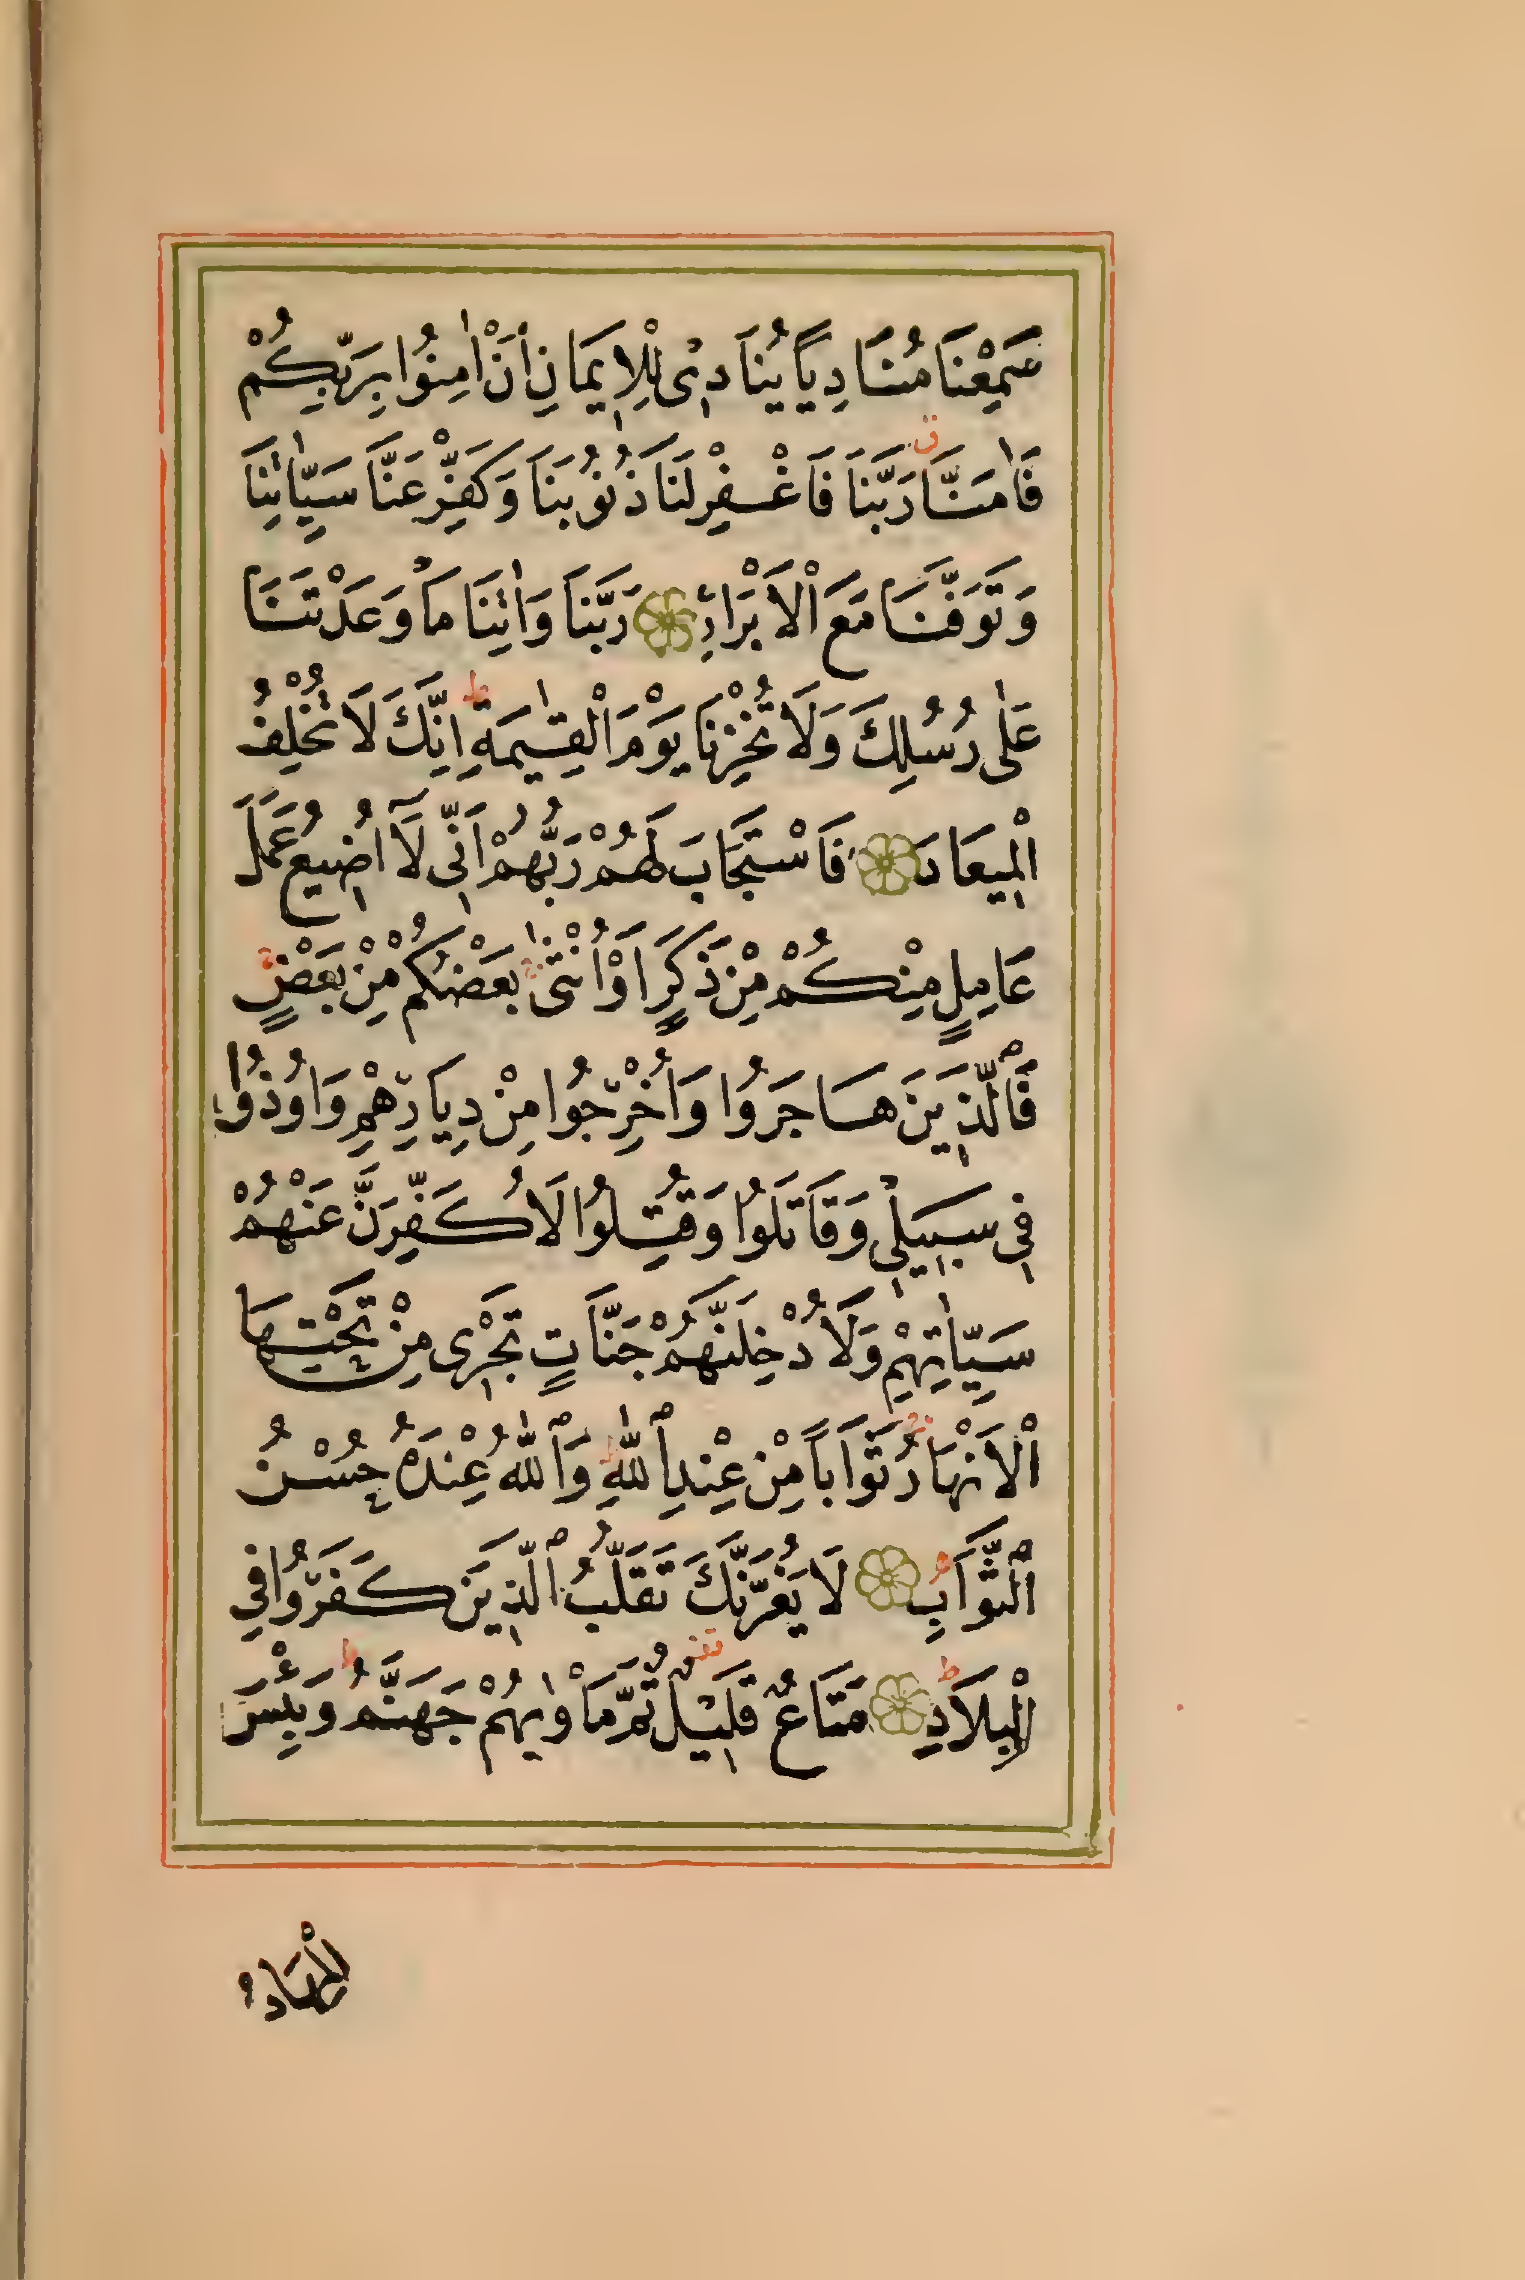 سَمِعْنَا مُنَادِيًا يُنَادِى لِلْاِيمَانِ اَنْ اٰمِنُوا بِرَبِّكُمْ
فَاٰمَنَّا رَبَّنَا فَاغْفِرْ لَنَا ذُنُوبَنَا وَكَفِّرْ عَنَّا سَيِّاٰتِنَا
وَتَوَفَّنَا مَعَ الْاَبْرَارِ رَبَّنَا وَاٰتِنَا مَا وَعَدْتَنَا
عَلٰى رُسُلِكَ وَلَا تُخْزِنَا يَوْمَ الْقِيٰمَةِ اِنَّكَ لَا تُخْلِفُ
الْمِيعَادَ فَاسْتَجَابَ لَهُمْ رَبُّهُمْ اَنِّى لَٓا اُضِيعُ عَمَلَ
عَامِلٍ مِنْكُمْ مِنْ ذَكَرٍ اَوْ اُنْثٰى بَعْضُكُمْ مِنْ بَعْضٍ
فَالَّذِينَ هَاجَرُوا وَاُخْرِجُوا مِنْ دِيَارِهِمْ وَاُوذُوا
فِى سَبِيلِى وَقَاتَلُوا وَقُتِلُوا لَاُكَفِّرَنَّ عَنْهُمْ
سَيِّاٰتِهِمْ وَلَاُدْخِلَنَّهُمْ جَنَّاتٍ تَجْرِى مِنْ تَحْتِهَا
الْاَنْهَارُ ثَوَابًا مِنْ عِنْدِ اللّٰهِ وَاللّٰهُ عِنْدَهُ حُسْنُ
الثَّوَابِ لَا يَغُرَّنَّكَ تَقَلُّبُ الَّذِينَ كَفَرُوا فِى
الْبِلَادِ مَتَاعٌ قَلِيلٌ ثُمَّ مَاْوٰيهُمْ جَهَنَّمُ وَبِئْسَ
الْمِهَادُ